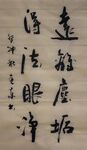 遠離塵垢
得法眼淨